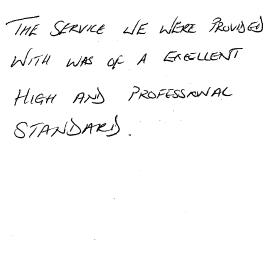 THE SERVICE WE WERE PROVIDED
WITH WAS OF A EXCELLENT
HIGH AND PROFESSIONAL
STANDARD.